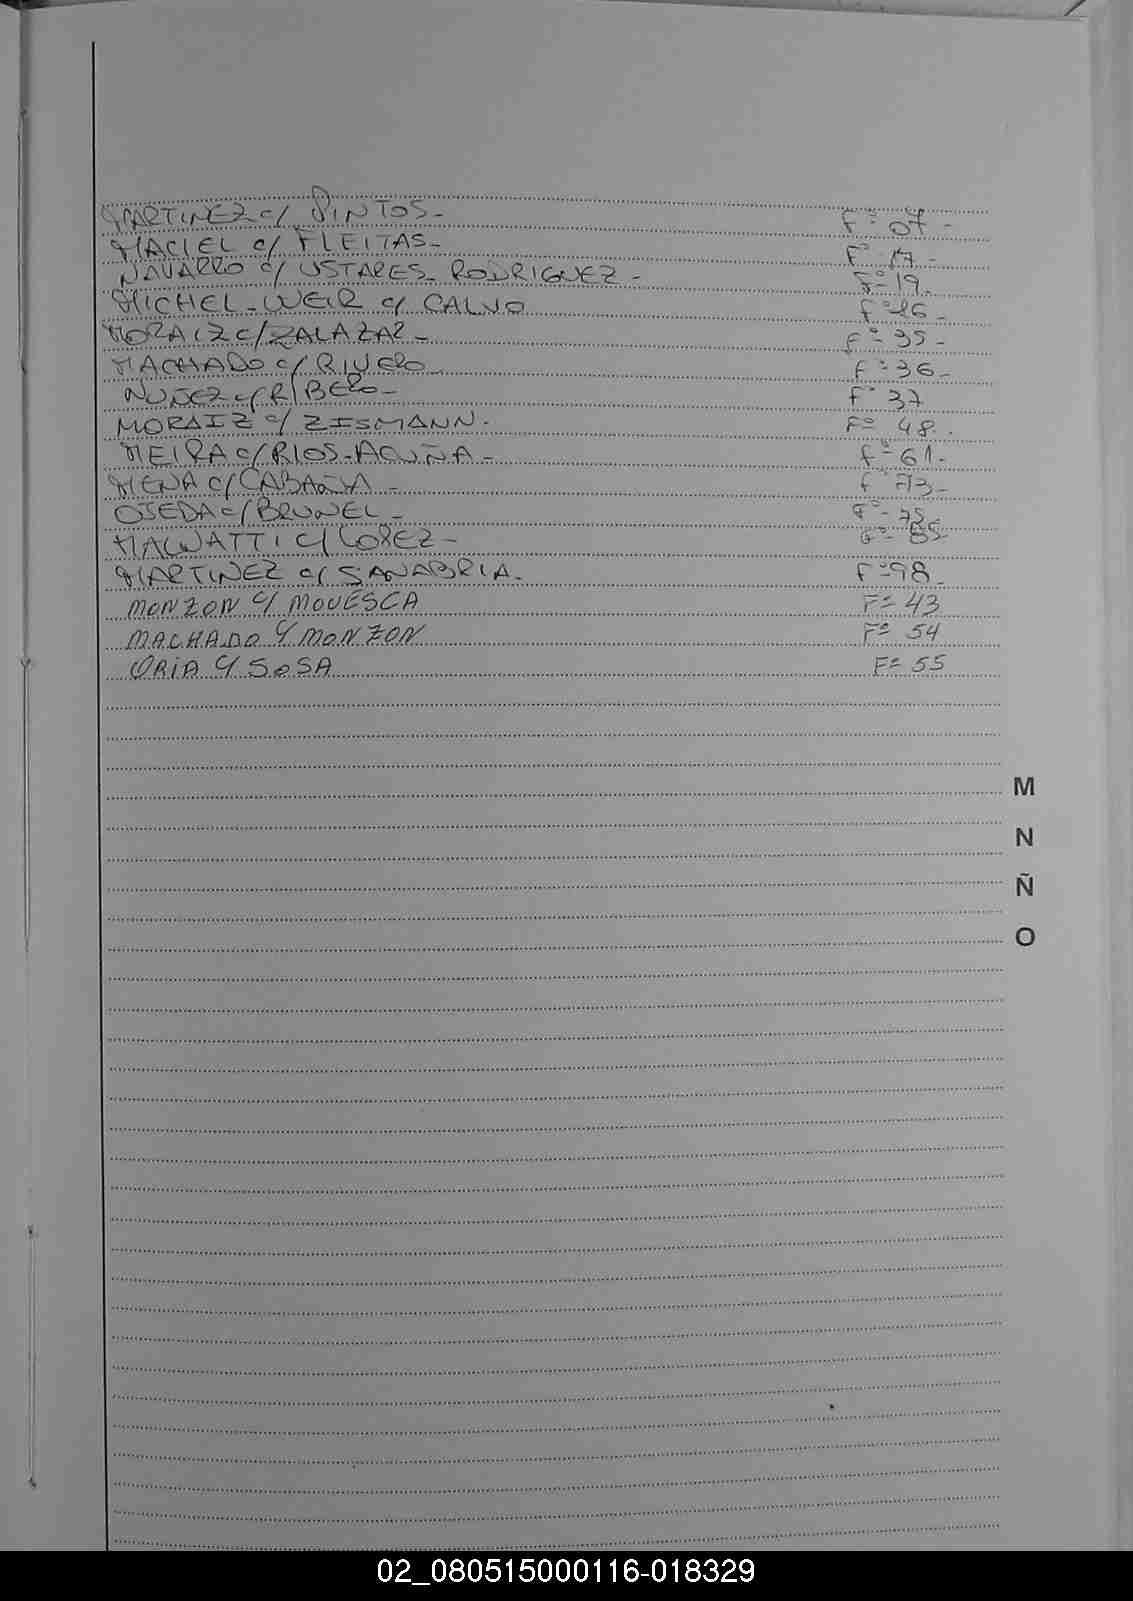 MARTINEZ c/ PINTOS- F° 07-
MACIEL c/ FLEITAS- F° 17-
NAVARRO c/ USTARES-RODRIGUEZ- F° 19.
MICHEL-WEIR c/ CALVO F° 26-
MORAIZ c/ ZALAZAR- F° 35-
MACHADO c/ RIVERO F° 36-
NUÑEZ c/ RIBERO- F° 37
MORAIZ c/ ZISMANN. F° 48.
MEIRA c/ RIOS-ACUÑA- F° 61.
MENA c/ CABAÑA- F° 73-
OJEDA c/ BRUNEL- F° 75-
c/ LOPEZ- F° 85
MARTINEZ c/ SANABRIA. F° 98
MONZON c/ MOVESCA F° 43
MACHADO c/ MONZON F° 54
ORIA c/ SOSA F° 55
M
N
Ñ
O
02_080515000116-018329